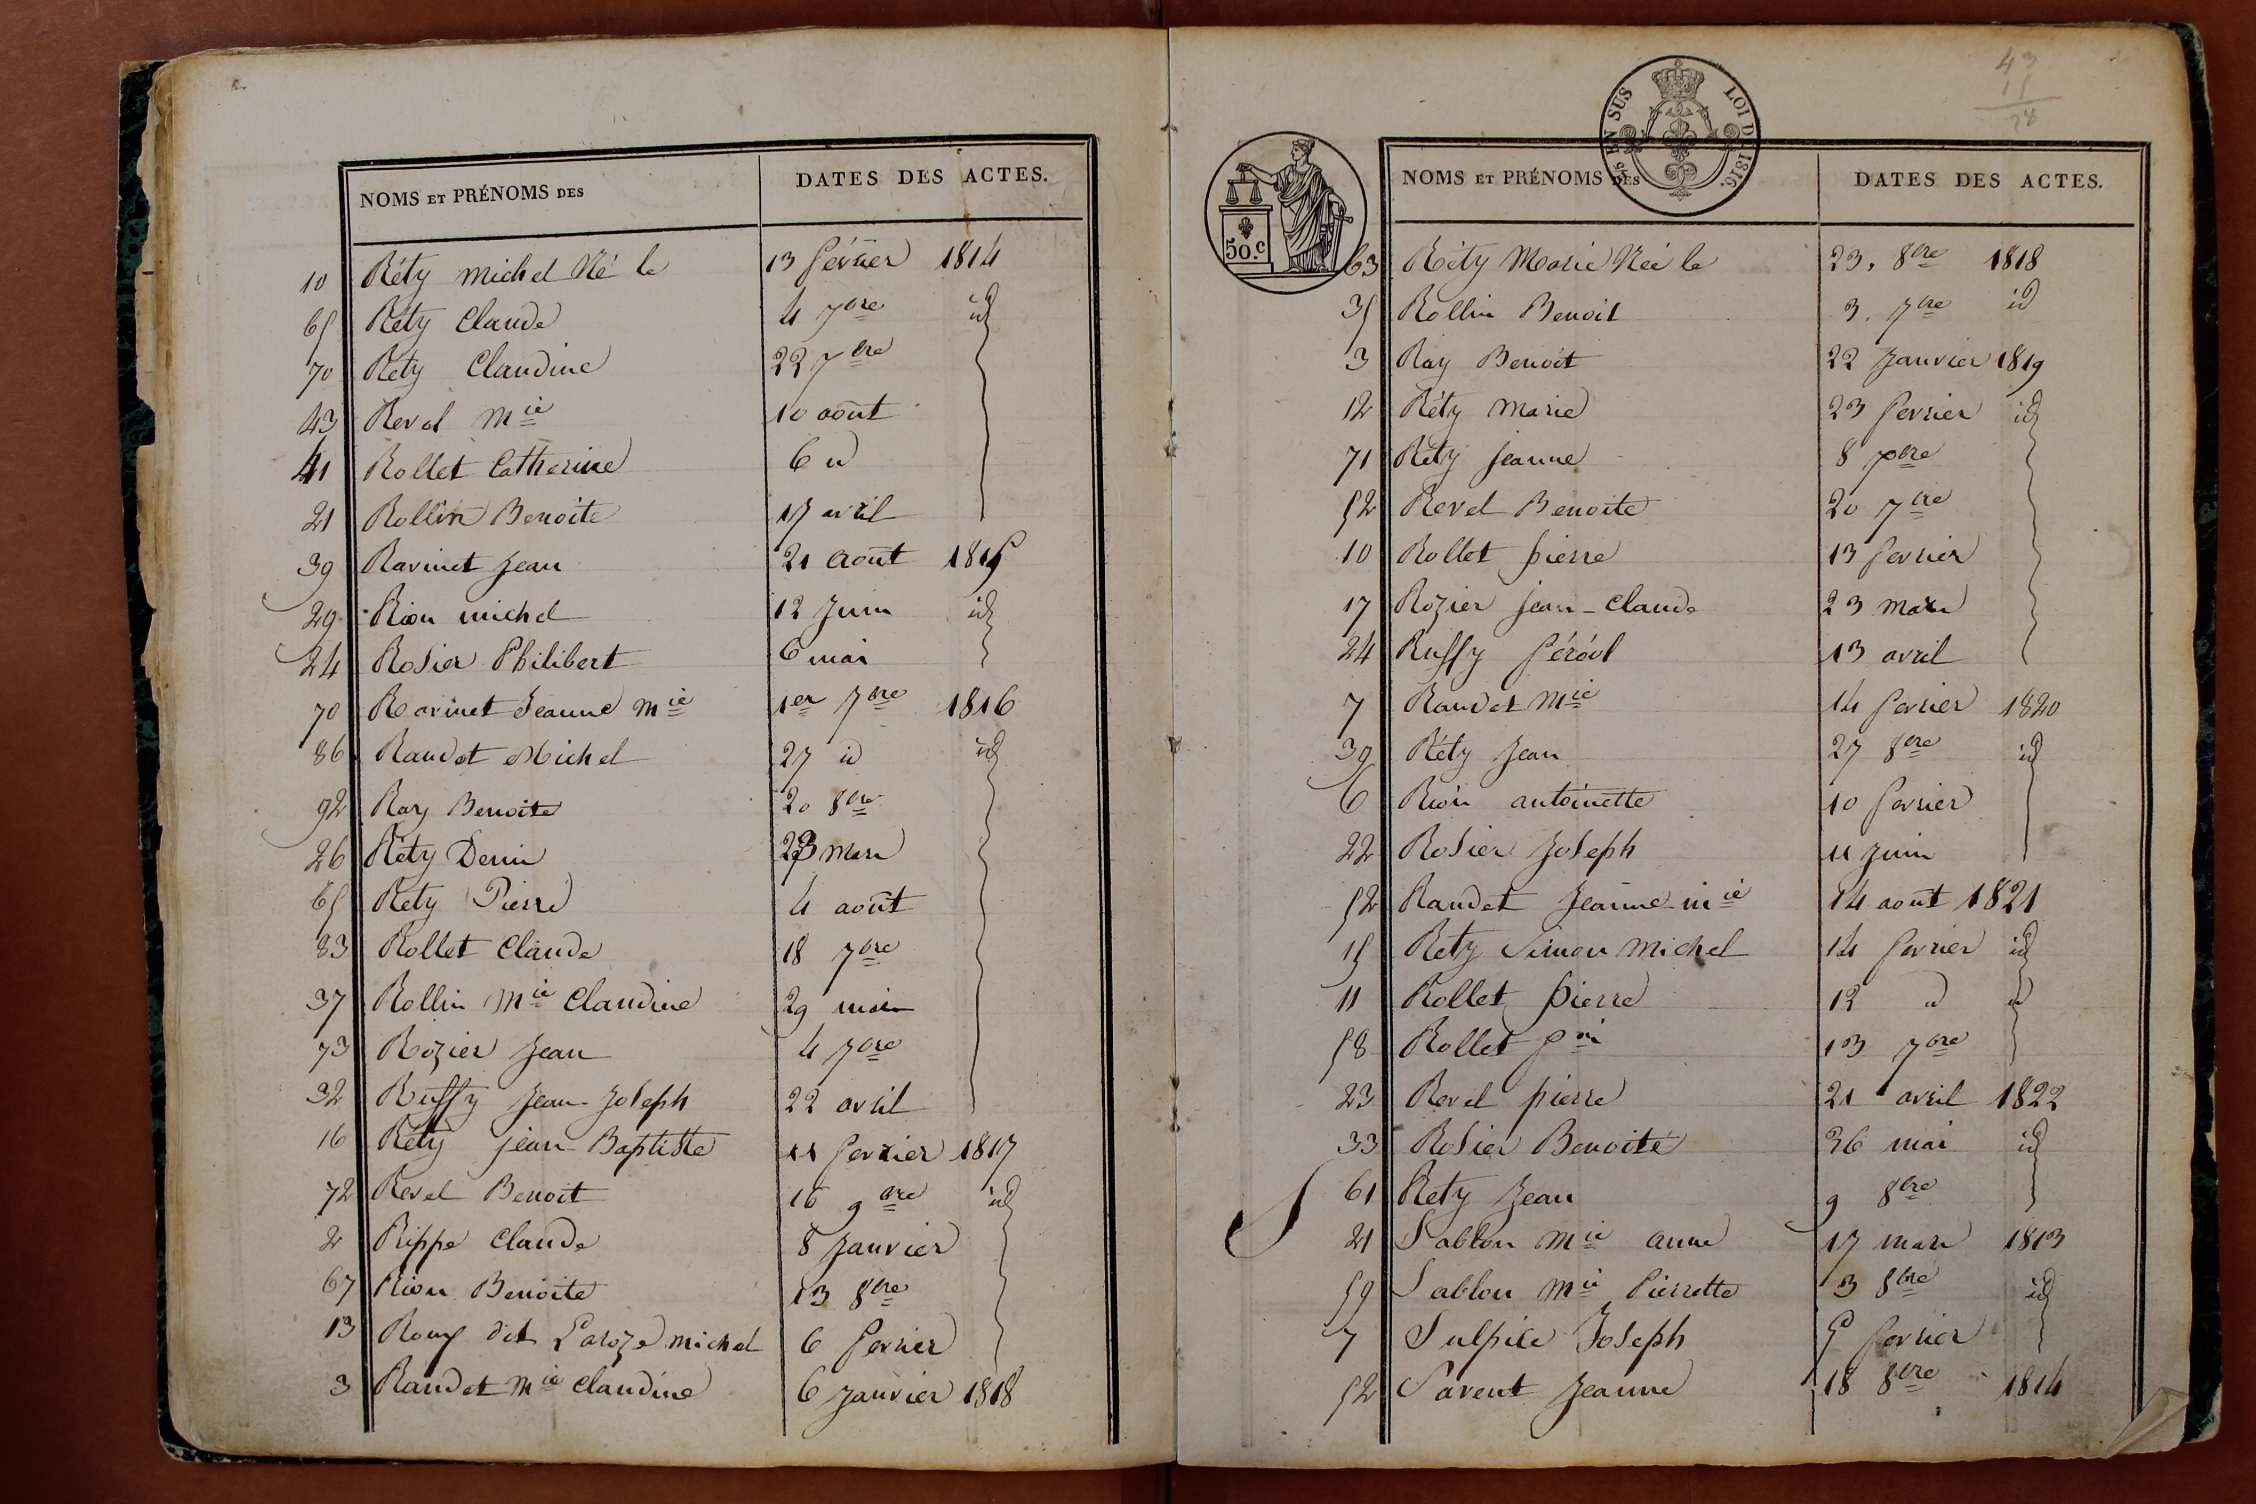 NOMS ET PRÉNOMS DES DATES DES ACTES.
10 Réty michel Né le 13 février 1814
65 Réty Claude 4 7bre id
70 Réty Claudine 22 7bre
43 Revel Mie 10 août
41 Rollet Catherine 6 id
21 Rollin Benoite 17 avril
39 Ravinet Jean 21 août 1815
29 Rion michel 12 Juin id
24 Rosier Philibert 6 mai
70 Ravinet Jeanne Mie 1er 7bre 1816
86 Raudet Michel 27 id id
92 Ray Benoite 20 8bre
26 Réty Denis mars
65 Rety Pierre 4 août
83 Rollet Claude 18 7bre
37 Rollin Mie Claudine 29 mai
73 Rozier Jean 4 7bre
32 Ruffy Jean-Joseph 22 avril
16 Réty jean-Baptiste 11 fevrier 1817
72 Revel Benoit 16 9bre id
2 Rippe Claude 8 Janvier
67 Rion Benoite 13 8bre
13 Roux dit Laroze michel 6 fevrier
3 Raudet Mie Claudine 6 Janvier 1818
43
15
28
EN SUS LOI DE 1816.
50.c
NOMS ET PRÉNOMS DES DATES DES ACTES.
63 Réty Marie Née le 23. 8bre 1818
35 Rollin Benoit 3. 7bre id
3 Ray Benoit 22 Janvier 1819
12 Réty Marie 23 fevrier id
71 Réty Jeanne 8 xbre
52 Revel Benoite 20 7bre
10 Rollet pierre 13 fevrier
17 Rozier jean-Claude 23 mars
24 Ruffy féréol 13 avril
7 Raudet Mie 14 fevrier 1820
39 Réty Jean 27 8bre id
6 Rion antoinette 10 fevrier
22 Rosier Joseph 11 Juin
52 Raudet Jeanne Mie 14 août 1821
15 Rety Simon Michel 14 fevrier id
11 Rollet pierre 12 id id
58 Rollet 13 7bre
23 Revel pierre 21 avril 1822
33 Rosier Benoite 26 mai id
61 Rety Jean 9 8bre
S
21 Sablon Mie anne 17 mars 1813
59 Sablon Mie Pierrette 3 8bre id
7 Sulpice Joseph 5 fevrier
52 Savent Jeanne 18 8bre 1814